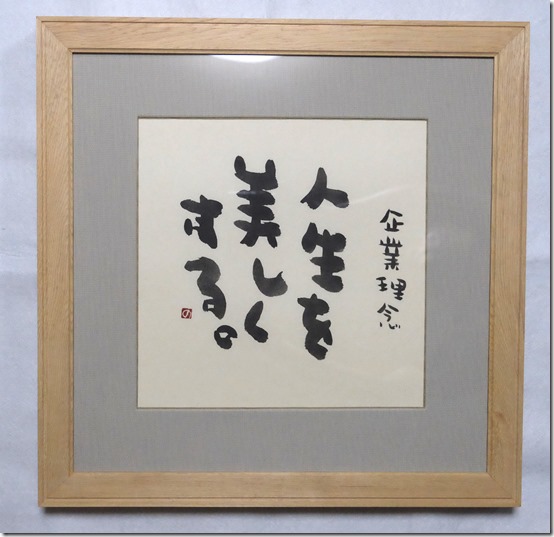 企業理念
人生を
美しく
する。
の